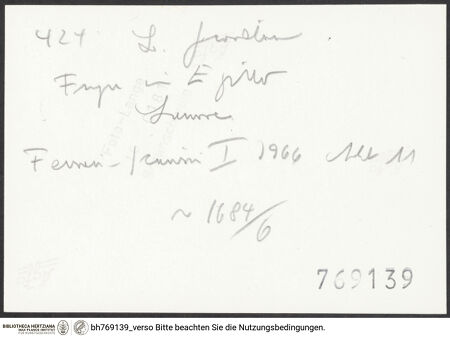 424 L. Giordano
Fuga in Egitto
Louvre
Ferrari-Scavizzi I 1966 Abb 11
~ 1684/6
769139
BIBLIOTHECA HERTZIANA
MAX-PLANCK-INSTITUT
bh769139_verso Bitte beachten Sie die Nutzungsbedingungen.